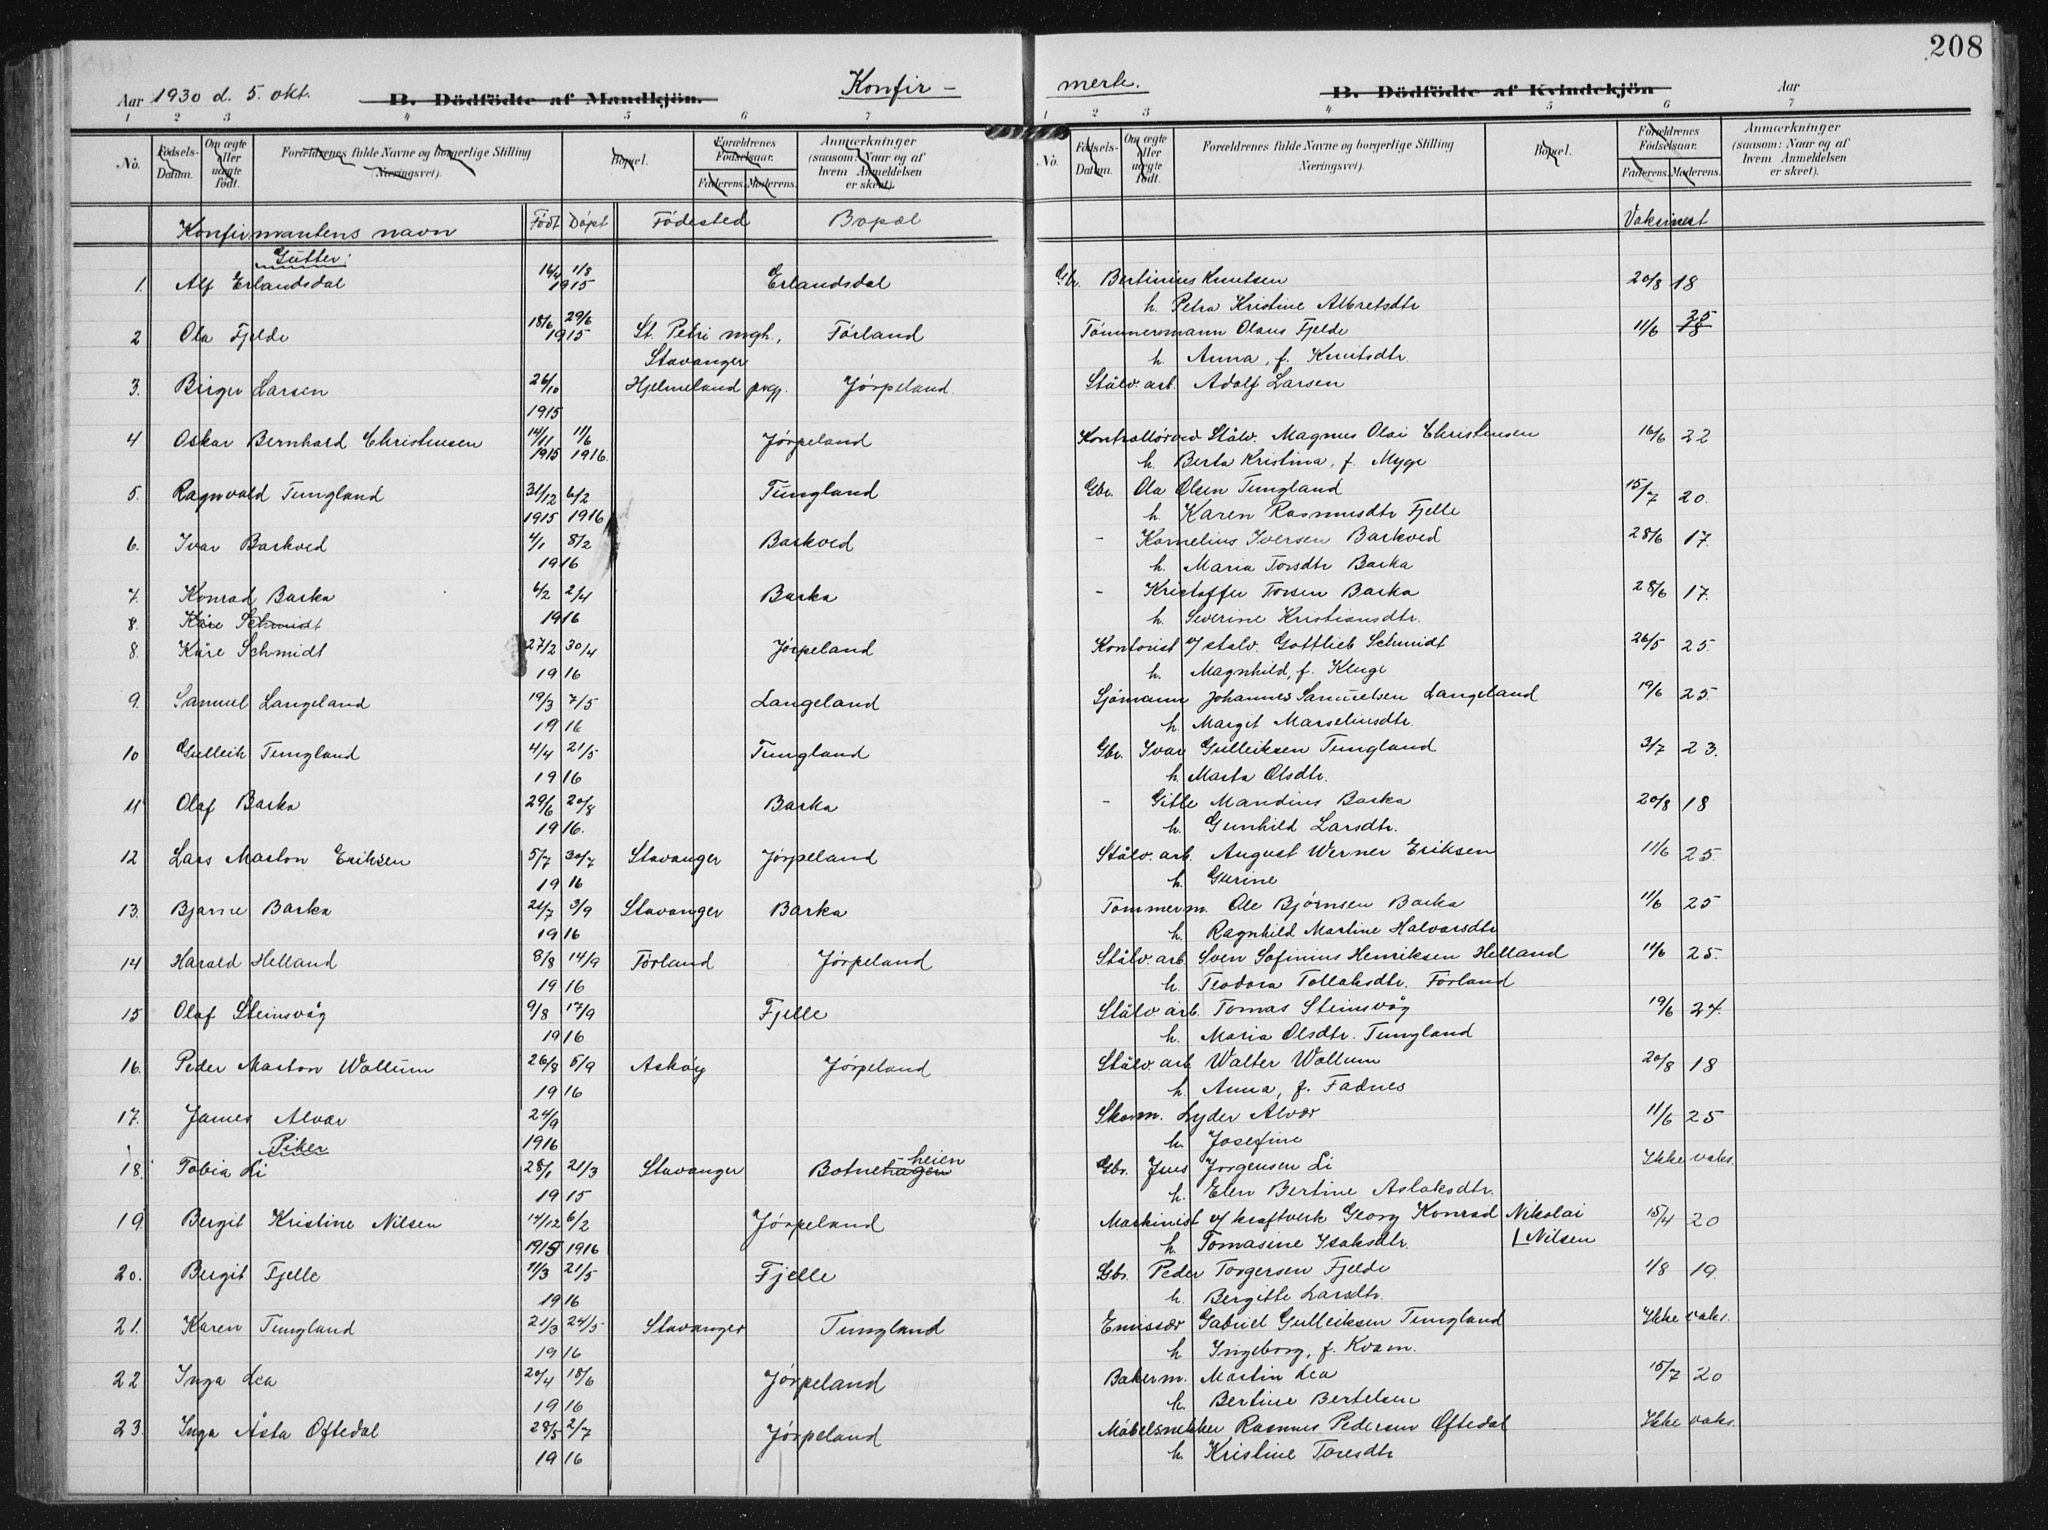 208
Aar 1930 d. 5. okt. B. Dödfödte af Mandkjön. Konfir-
merte. B. Dödfödte af Kvindekjön Aar
1 2 3 4 5 6 7
1 2 3 4 5 6 7
No. Födsels-Datum. Om ægte eller uægte födt. Forældrenes fulde Navne og borgerlige Stilling (Næringsvei). Bopæl. Forældrenes Födselsaar. Faderens. Moderens. Anmærkninger (saasom: Naar og af hvem Anmeldelsen er skeet).
No. Födsels-Datum. Om ægte eller uægte födt. Forældrenes fulde Navne og borgerlige Stilling (Næringsvei). Bopæl. Forældrenes Födselsaar. Faderens. Moderens. Anmærkninger (saasom: Naar og af hvem Anmeldelsen er skeet).
Konfirmantens navn Födt Döpt Födested Bopæl Vaksinert
Gutter:
1. Alf Erlandsdal 16/4 11/8 Erlandsdal Gbr. Bertinius Knutsen 20/8 18
1915 h. Petra Kristine Albretsdtr
2 Ola Fjelde 18/6 29/6 St. Petri mgh., Förland Tömmermann Olaus Fjelde 11/6 25 18
1915 Stavanger h. Anna, f. Knutsdtr.
3. Birger Larsen 26/10 Hjelmeland prgj. Jörpeland. Stålv. arb. Adolf Larsen
1915
4 Oskar Bernhard Christensen 14/11 11/6 Jörpeland Kontrollör ved Stålv. Magnus Olai Christensen 16/6 22
1915 1916. h. Berta Kristina, f. Myge
5. Ragnvald Tungland 31/12 6/2 Tungland Gbr. Ola Olsen Tungland 15/7 20.
1915 1916 h. Karen Rasmusdtr Fjelle
6. Ivar Barkved 4/1 8/2 Barkved - Kornelius Iversen Barkved 28/6 17.
1916 h. Maria Torsdtr Barka
7. Konrad Barka 6/2 2/4 Barka - Kristoffer Torsen Barka 28/6 17.
8. Kåre Schmidt 1916 h. Severine Kristiansdtr.
8. Kåre Schmidt 27/2 30/4 Jörpeland Kontorist v/ stalv. Gottlieb Schmidt 26/5 25.
1916 h. Magnhild, f. Kluge
9. Samuel Langeland 19/3 7/5 Langeland Sjömann Johannes Samuelsen Langeland 19/6 25.
1916 h. Margit Marselinsdtr.
10 Gulleik Tungland 4/4 21/5 Tungland Gbr. Ivar Gulleiksen Tungland 3/7 23.
1916 h. Marta Olsdtr.
11 Olaf Barka 29/6 20/8 Barka - Gitle Mandius Barka 20/8 18
1916. h. Gunhild Larsdtr.
12 Lars Marton Eriksen 5/7 30/7 Stavanger Jörpeland Stålv. arb. August Werner Eriksen 11/6 25.
1916 h. Gurine
13. Bjarne Barka 21/7 3/9 Stavanger Barka Tommerm. Ole Bjørnsen Barka 11/6 25
1916 h. Ragnhild Martine Halvarsdtr
14 Harald Helland 8/8 14/9 Förland Jörpeland Stålv. arb Sven Gofinius Henriksen Helland 14/6 25.
1916 h. Teodora Tollaksdtr. Förland
15 Olaf Steinsvåg 9/8 17/9 Fjelle Stålv. arb. Tomas Steinsvåg 19/6 24.
1916 h. Maria Olsdtr. Tungland
16. Peder Marton Wallum 26/8 5/9 Asköy Jörpeland Stålv. arb Walter Wallum 20/8 18
1916 h. Anna, f. Fadnes
17. James Alvær 24/9 Skom. Lyder Alvær 11/6 25
Piker 1916 h. Josefine
18. Tobia Li 28/1 21/3 Stavanger Botnehagen heien Gbr. Jens Jorgensen Li Ikke vaks.
1915 h. Elen Bertine Aslaksdtr.
19. Bergit Kristine Nilsen 14/12 6/2 Jörpeland Maskinist v/ kraftverk Georg Konrad Nikolai 15/4 20
1915 1916 h. Tomasine Isaksdtr. Nilsen
20. Bergit Fjelle 11/3 21/5 Fjelle Gbr. Peder Torgersen Fjelde 1/8 19.
1916 h. Bergitte Larsdtr.
21. Karen Tungland 21/3 24/5 Stavanger Tungland Emissær Gabriel Gulleiksen Tungland Ikke vaks.
1916 h Ingeborg, f. Kvam.
22 Inga Lea 20/4 18/6 Jörpeland Bakerm. Martin Lea 15/7 20
1916 h. Bertine Bertelsen
23. Inga Åsta Oftedal 28/5 2/7 Jörpeland Möbelsnekker Rasmus Pedersen Oftedal Ikke vaks.
1916 h. Kristine Toresdtr